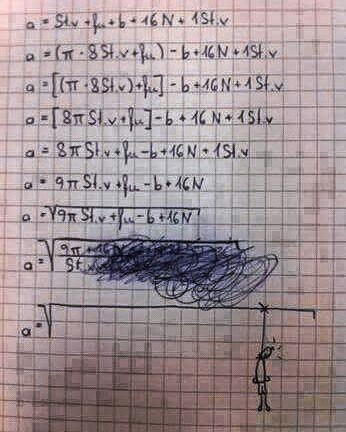 a = St.v + fμ + b + 16N + 1St.v
a = (π · 8St.v + fμ) - b + 16N + 1St.v
a = [(π · 8St.v) + fμ] - b + 16N + 1St.v
a = [8πSt.v + fμ] - b + 16N + 1St.v
a = 8πSt.v + fμ - b + 16N + 1St.v
a = 9πSt.v + fμ - b + 16N
a = √9πSt.v + fμ - b + 16N
a = √9π + 16
St.
a = √